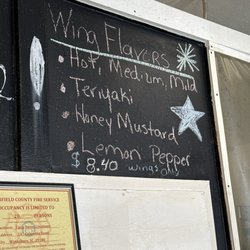 Wing Flavors
• Hot, Medium, Mild
• Teriyaki
• Honey Mustard
• Lemon Pepper
$8.40 wings only
FIELD COUNTY FIRE SERVICE
OCCUPANCY IS LIMITED TO
20 PERSONS